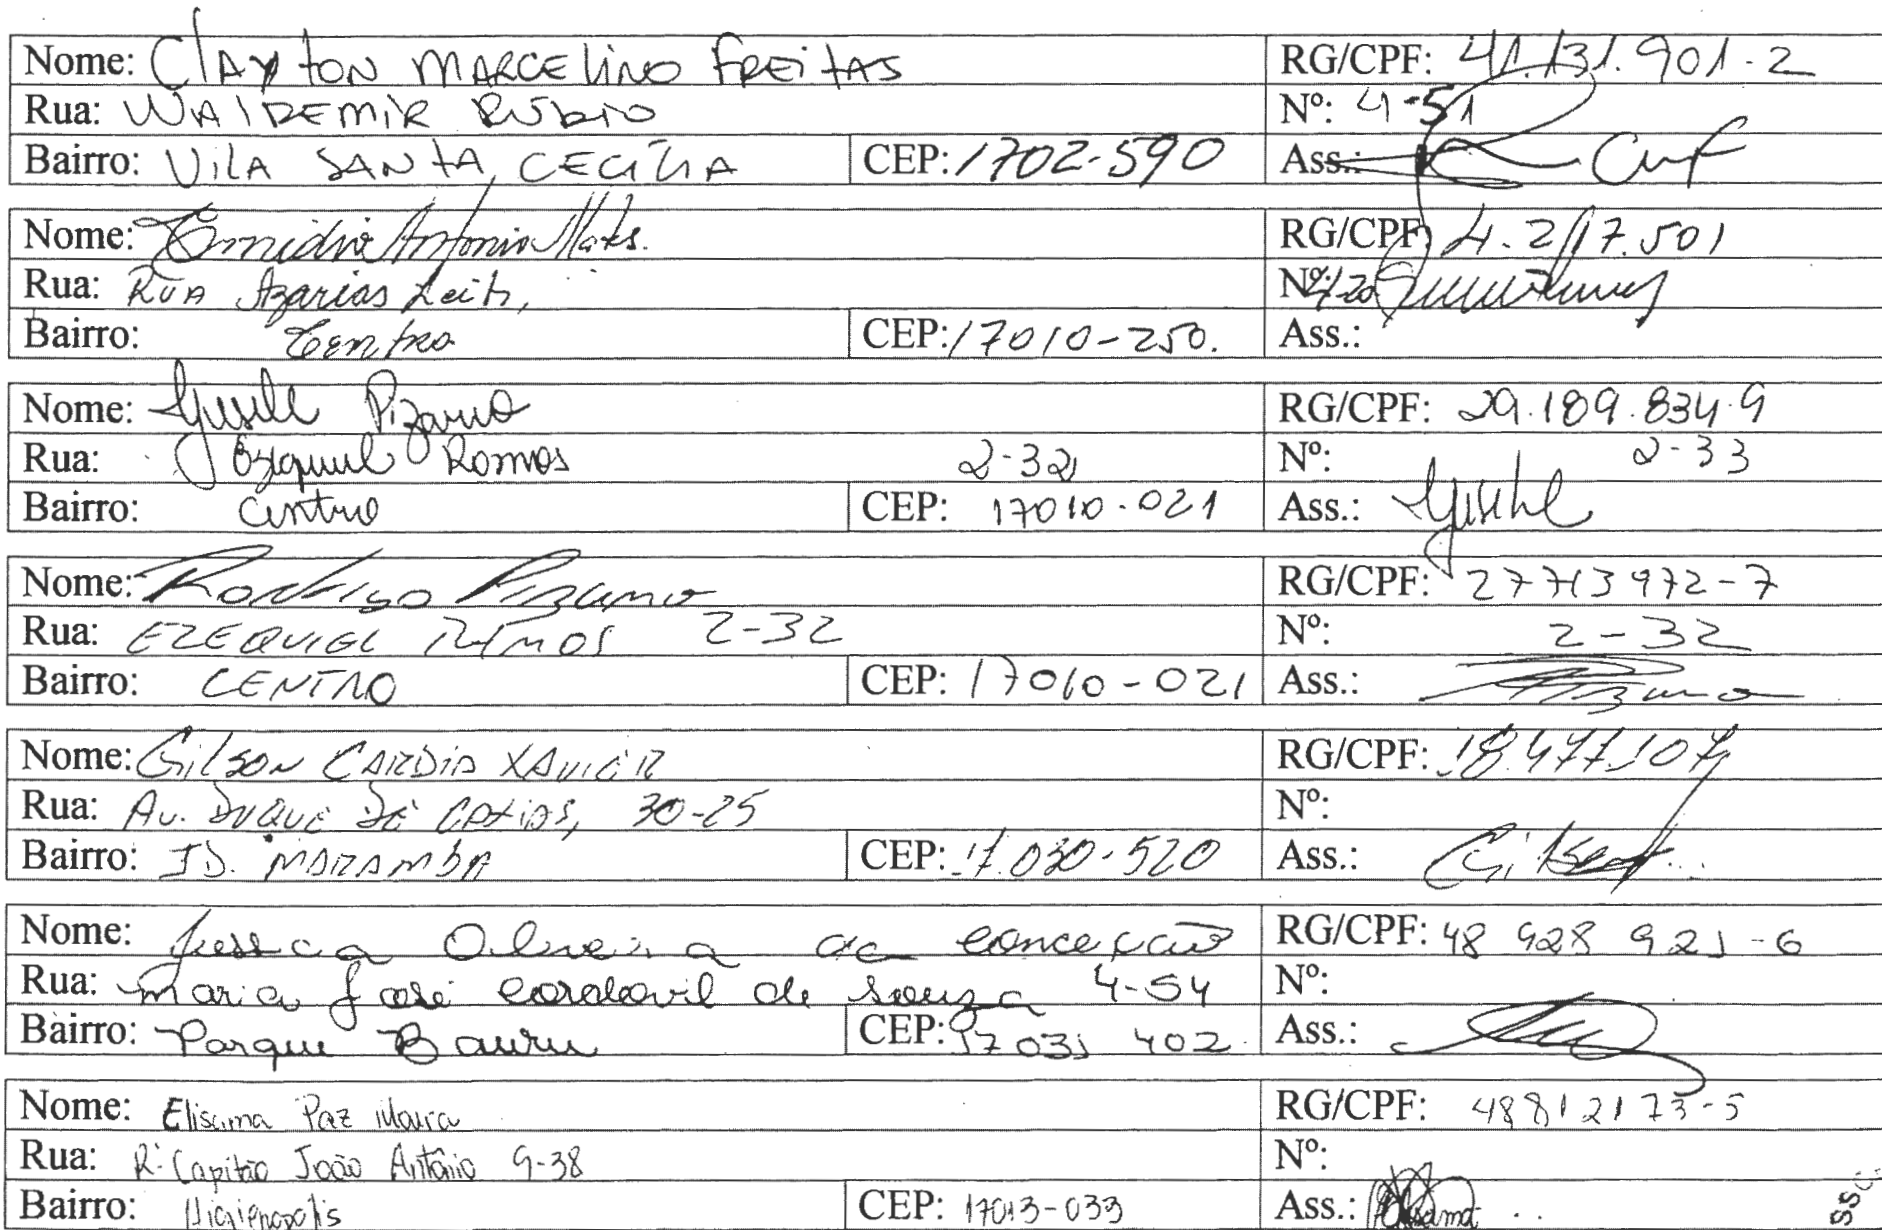 Nome: Clayton Marcelino Freitas RG/CPF: 41.131.901-2
Rua: Waldemir Rúbio Nº: 4-51
Bairro: Vila Santa Cecília CEP: 1702-590 Ass.:
Nome: Emidio Antonio RG/CPF: 4.217.501
Rua: Rua Azarias Leite, Nº:
Bairro: Centro CEP: 17010-250. Ass.:
Nome: Gisele Pizarro RG/CPF: 29.189.834-9
Rua: Ezequiel Ramos 2-32 Nº: 2-33
Bairro: Centro CEP: 17010-021 Ass.: Gisele
Nome: Rodrigo Pizarro RG/CPF: 27713972-7
Rua: EZEQUIEL RAMOS 2-32 Nº: 2-32
Bairro: CENTRO CEP: 17010-021 Ass.:
Nome: Gilson Cardia Xavier RG/CPF: 18.477.107
Rua: Av. Duque de Caxias, 30-25 Nº:
Bairro: Jd. Maramba CEP: 17.030-520 Ass.: Gilson
Nome: Jessica Oliveira da Conceição RG/CPF: 48 928 921-6
Rua: Maria José Cordovil de Souza 4-54 Nº:
Bairro: Parque Bauru CEP: 17031 402 Ass.:
Nome: Elisama Paz Moura RG/CPF: 48812173-5
Rua: R: Capitão João Antônio 9-38 Nº:
Bairro: Higienopolis CEP: 17013-033 Ass.: